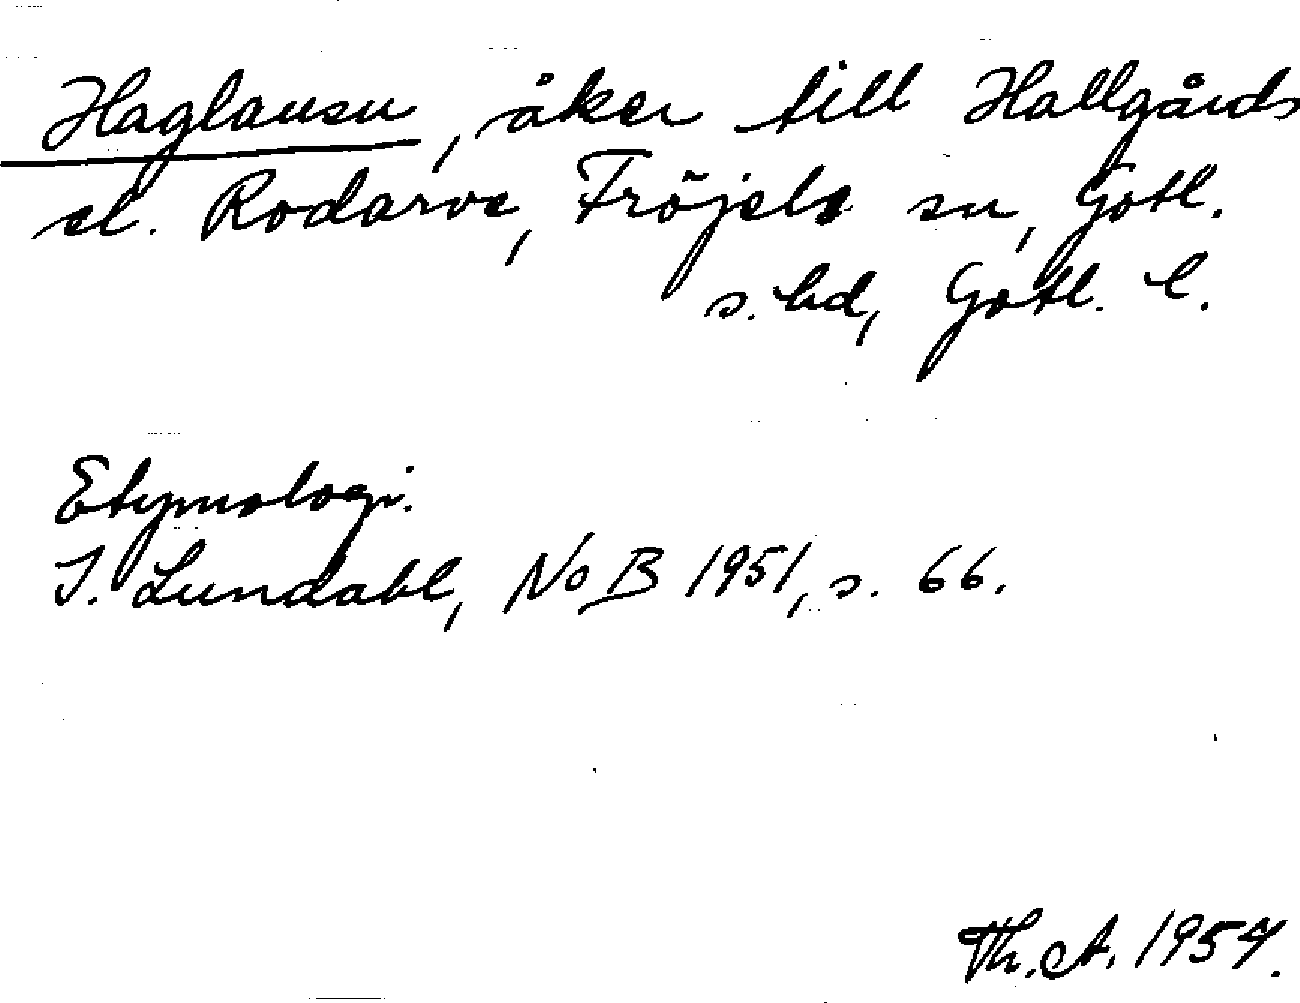 Haglausu, åker till Hallgårds
el. Rodarve, Fröjels sn, Gotl.
s. hd, Gotl. l.
Etymologi.
I. Lundahl, NoB 1951, s. 66.
Th. A. 1957.